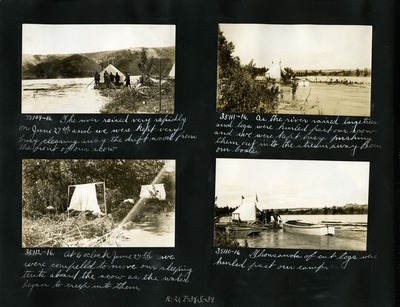 35109-16. The river raised very rapidly
on June 27th and we were kept very
busy clearing away the drift wood from
the front of our scow
35111-16. As the river raised large trees
and logs were hurled past our scow
and we were kept busy pushing
them out into the stream away from
our boats
35112-16. At 6 o'clock June 27th we
were compelled to move our sleeping
tents along the scow as the water
began to creep into them
35110-16. Thousands of cut logs were
hurled past our camp